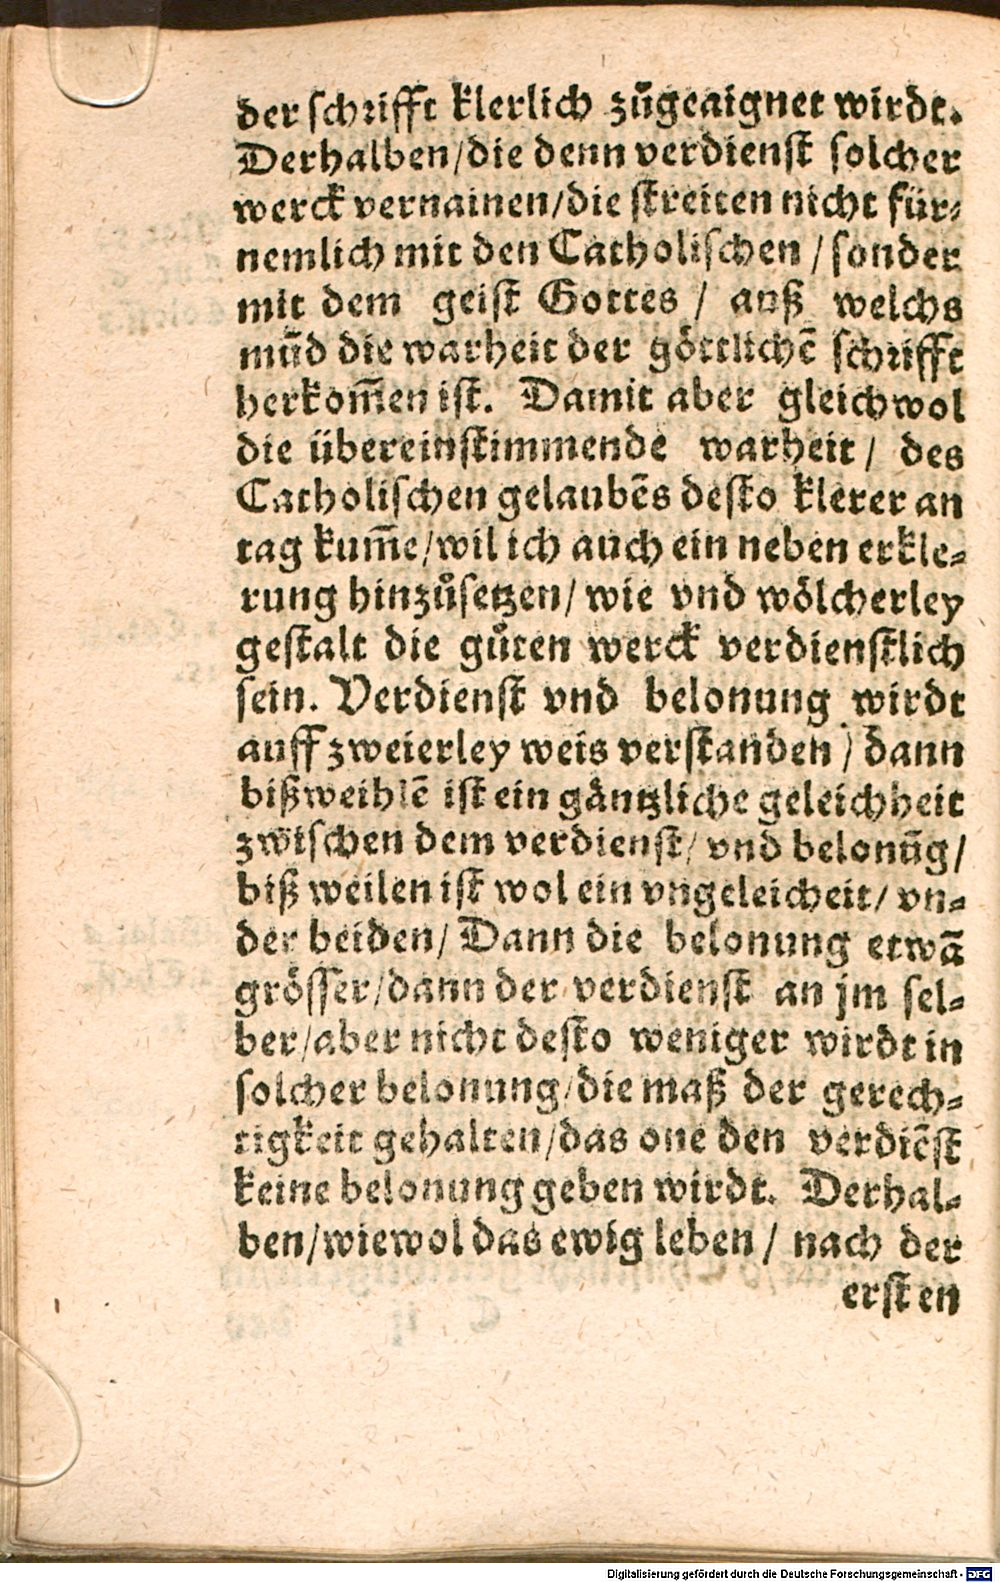 der schrifft klerlich zůgeaignet wirdt.
Derhalben/die denn verdienst solcher
werck vernainen/die streiten nicht für⸗
nemlich mit den Catholischen / sonder
mit dem geist Gottes / auß welchs
mūd die warheit der göttlichē schrifft
herkom̄en ist. Damit aber gleichwol
die übereinstimmende warheit / des
Catholischen gelaubēs desto klerer an
tag kum̄e/wil ich auch ein neben erkle⸗
rung hinzůsetzen/ wie vnd wölcherley
gestalt die gůten werck verdienstlich
sein. Verdienst vnd belonung wirdt
auff zweierley weis verstanden / dann
bißweihlē ist ein gäntzliche geleichheit
zwischen dem verdienst/ vnd belonūg/
biß weilen ist wol ein vngeleicheit/ vn⸗
der beiden/ Dann die belonung etwā
grösser/dann der verdienst an jm sel⸗
ber/aber nicht desto weniger wirdt in
solcher belonung/die maß der gerech⸗
tigkeit gehalten/das one den verdiēst
keine belonung geben wirdt. Derhal⸗
ben/wiewol das ewig leben / nach der
ersten
Digitalisierung gefördert durch die Deutsche Forschungsgemeinschaft - DFG